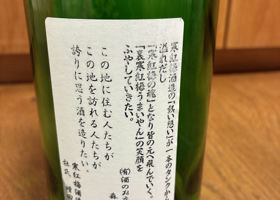 寒紅梅酒造の『強い想い』が一本のタンクから
溢れだし
『寒紅梅の魂』となり皆の元へ飛んでいく。
『裏寒紅梅うまいやん』の笑顔を
ふやしていきたい。
㈲酒のお
この地に住む人たちが
この地を訪れる人たちが
誇りに思う酒を造りたい。
寒紅梅酒造
杜氏 増田